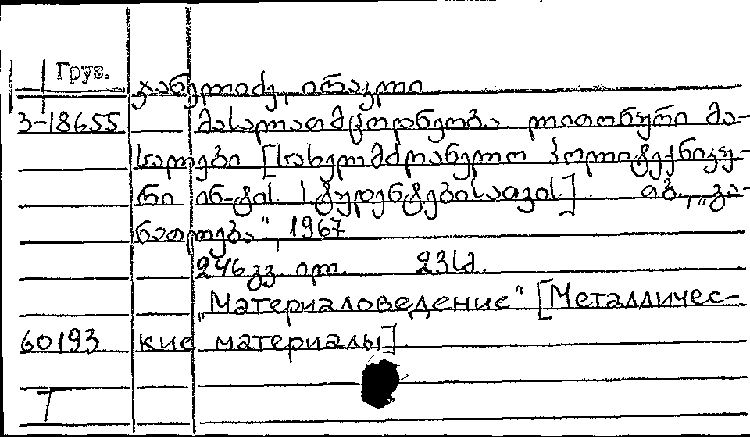 Груз.
ჯანელიძე, ირაკლი
3-18655 მასალათმცოდნეობა ლითონური მა-
სალები [სახელმძღვანელო პოლიტექნიკუ-
რი ინ-ტის სტუდენტებისათვის] თბ., „გა-
ნათლება", 1967
246 გვ. ილ. 23 სმ.
„Материаловедение" [Металличес-
60193 кие материалы]
Т